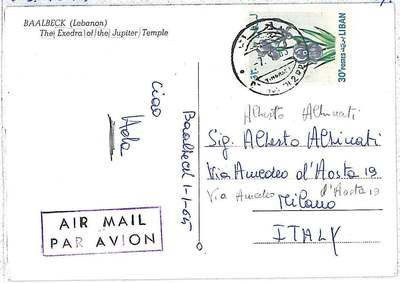 BAALBECK (Lebanon)
The Exedra of the Jupiter Temple
LIBAN
30P POSTES
Ciao
Baalbeck 1-1-65
AIR MAIL
PAR AVION
Alberto
Sig. Alberto
Via Amedeo d'Aosta 19
Via Amedeo d'Aosta 19
Milano
ITALY